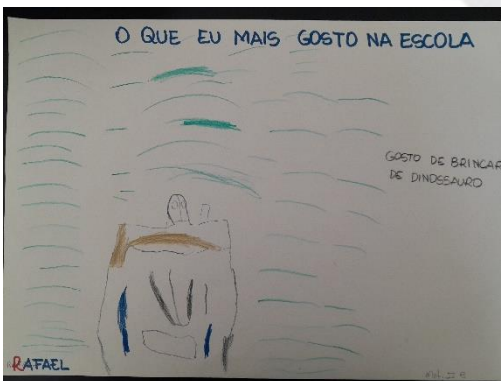 O QUE EU MAIS GOSTO NA ESCOLA
GOSTO DE BRINCAR
DE DINOSSAURO
RAFAEL